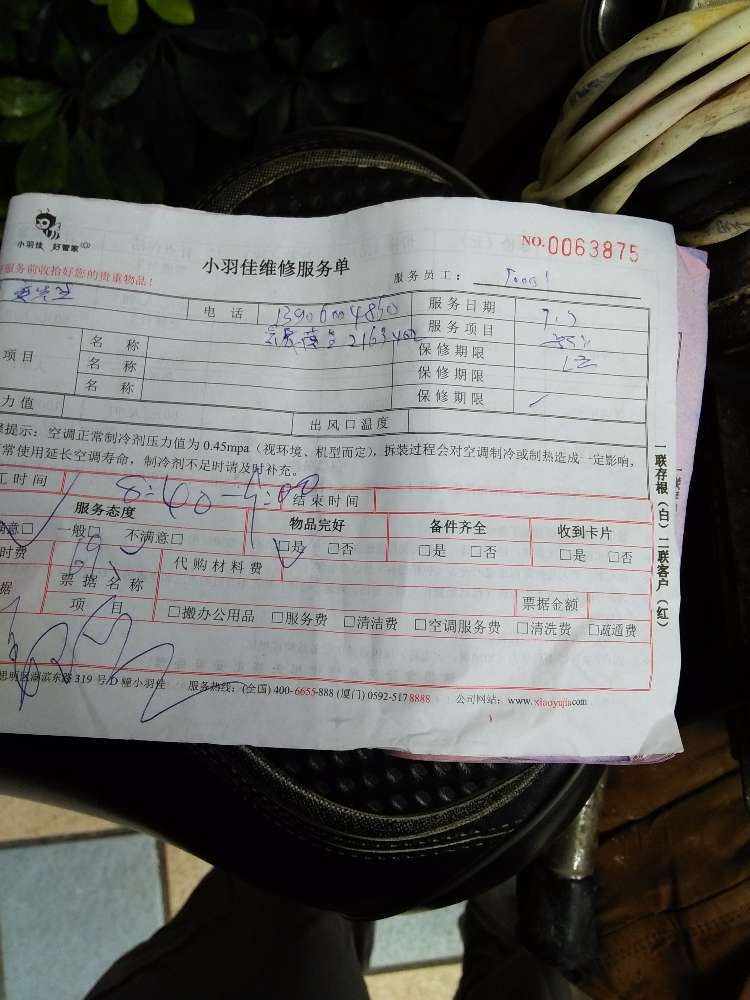 小羽佳 好管家
NO.0063875
小羽佳维修服务单
服务员工：
服务前收拾好您的贵重物品！
电 话
服务日期
服务项目
项目
名 称
名 称
名 称
保修期限
保修期限
保修期限
力值
出风口温度
提示：空调正常制冷剂压力值为 0.45mpa（视环境、机型而定），拆装过程会对空调制冷或制热造成一定影响，
常使用延长空调寿命，制冷剂不足时请及时补充。
工时间 8:40-9:00 结束时间
服务态度
物品完好
备件齐全
收到卡片
满意□ 一般□ 不满意□
□是 □否
□是 □否
□是 □否
时费
代购材料费
据
票据名称
票据金额
项 目
□搬办公用品 □服务费 □清洁费 □空调服务费 □清洗费 □疏通费
思明区湖滨东路 319 号 D 幢小羽佳 服务热线：(全国) 400-6655-888 (厦门) 0592-5178888 公司网站：www.xiaoyujia.com
一联存根（白）二联客户（红）